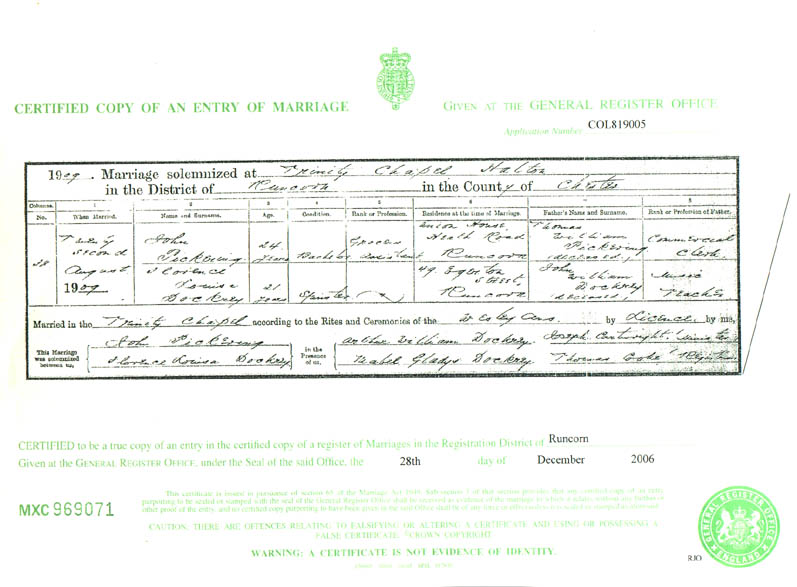 CERTIFIED COPY OF AN ENTRY OF MARRIAGE
GIVEN AT THE GENERAL REGISTER OFFICE
Application Number COL819005
1909. Marriage solemnized at Trinity Chapel Halton
in the District of Runcorn in the County of Chester
Columns. 1 2 3 4 5 6 7 8
No. When Married. Name and Surname. Age. Condition. Rank or Profession. Residence at the time of Marriage. Father's Name and Surname. Rank or Profession of Father.
38
Twenty second August 1909
John Pickering 24 years Bachelor Grocers assistant Union House Heath Road Runcorn Thomas William Pickering (deceased) Commercial Clerk
Florence Louisa Dockrey 21 years Spinster 49 Egerton Street Runcorn John William Dockrey (deceased) Music Teacher
Married in the Trinity Chapel according to the Rites and Ceremonies of the Wesleyans. by Licence by me,
This Marriage was solemnized between us,
John Pickering
Florence Louisa Dockrey
in the Presence of us,
Arthur William Dockrey
Isabel Gladys Dockrey
Joseph Cartwright, Minister
Thomas Coke
CERTIFIED to be a true copy of an entry in the certified copy of a register of Marriages in the Registration District of Runcorn
Given at the GENERAL REGISTER OFFICE, under the Seal of the said Office, the 28th day of December 2006
MXC 969071
This certificate is issued in pursuance of section 65 of the Marriage Act 1949. Sub-section 3 of that section provides that any certified copy of an entry
purporting to be sealed or stamped with the seal of the General Register Office shall be received as evidence of the marriage to which it relates without any further or
other proof of the entry, and no certified copy purporting to have been given in the said Office shall be of any force or effect unless it is sealed or stamped as aforesaid.
CAUTION: THERE ARE OFFENCES RELATING TO FALSIFYING OR ALTERING A CERTIFICATE AND USING OR POSSESSING A
FALSE CERTIFICATE. ©CROWN COPYRIGHT
WARNING: A CERTIFICATE IS NOT EVIDENCE OF IDENTITY.
GENERAL REGISTER OFFICE
ENGLAND
RJO